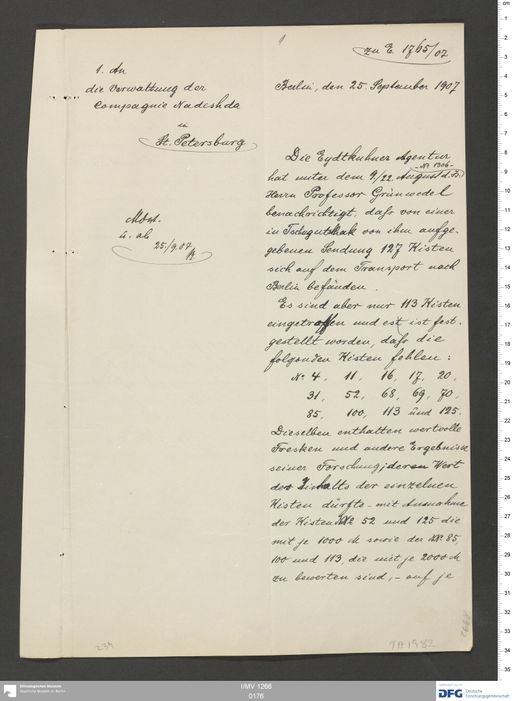 zu E. 1765/07
1. An
die Verwaltung der
Compagnie Nadeshda
in
St. Petersburg
Berlin, den 25. September 1907
Die Eydtkuhner Agentur
- № 1306 -
hat unter dem 9./22. August d. Js.
Herrn Professor Grünwedel
benachrichtigt, dafs von einer
in Tschugutschak von ihm aufge-
gebenen Sendung 127 Kisten
sich auf dem Transport nach
Berlin befänden.
Es sind aber nur 113 Kisten
eingetroffen und es ist fest-
gestellt worden, dafs die
folgenden Kisten fehlen:
№ 4, 11, 16, 17, 20,
31, 52, 68, 69, 70,
85, 100, 113 und 125.
Dieselben enthalten wertvolle
Fresken und andere Ergebnisse
seiner Forschung; deren Wert
des Inhalts der einzelnen
Kisten dürfte - mit Ausnahme
der Kisten №№ 52 und 125 die
mit je 1000 M sowie der №№ 85,
100 und 113, die mit je 2000 M
zu bewerten sind, - auf je
u. ab
25/9.07
239
TA 1982
I/MV 1266
0176
Ethnologisches Museum
Staatliche Museen zu Berlin
DFG
Deutsche
Forschungsgemeinschaft